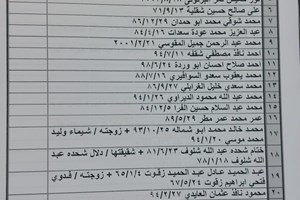 علي صالح حسين شقلية ٧١/٩/١٣ ٥
محمد شوقي محمد ابو حمدان ٨٦/١٢/٢٩ ٦
عبد العزيز محمد عودة سعدات ٨٤/٤/١٦ ٧
نور عبد الرحمن جميل المقوسي ٢٠٠١/٢/٢١ ٩
احمد نافذ مصطفي شقفه ٩٤/٧/١١ ١٠
احمد إحسان ابو وردة ٩٨/٦/٢٤ ١١
محمد يعقوب سعدو السوافيري ٨٨/٧/١٦ ١٢
محمد سعدي خليل القرابلي ٨٦/٩/٢٧ ١٣
محمد عبد الله محمود الديراوي ٩٤/١/٢٦ ١٤
محمد عبد السلام حسين الفرا ٨٤/٥/١٢ ١٥
عمر محمد عمر مطر ٨٩/٥/٢٩ ١٦
محمد خالد محمد ابو شماله ٩٣/١٠/٢٥ + زوجته / شيماء وليد ١٧
محمد موسي ٩٤/١/٢٠
ختام شحده عبد الله شلوف ٨١/٦/٢٣ + شقيقتها / دلال شحده عبد ١٨
الله شلوف ٧٨/١/١٨
عبد الحميد عادل عبد الحميد زقوت ٦٥/١/٤ + زوجته / فدوي ١٩
فتحي ابراهيم زقوت ٦٧/٥/٢٤
محمود نافذ عثمان العايدي ٩٤/٢/٢٧ ٢٠